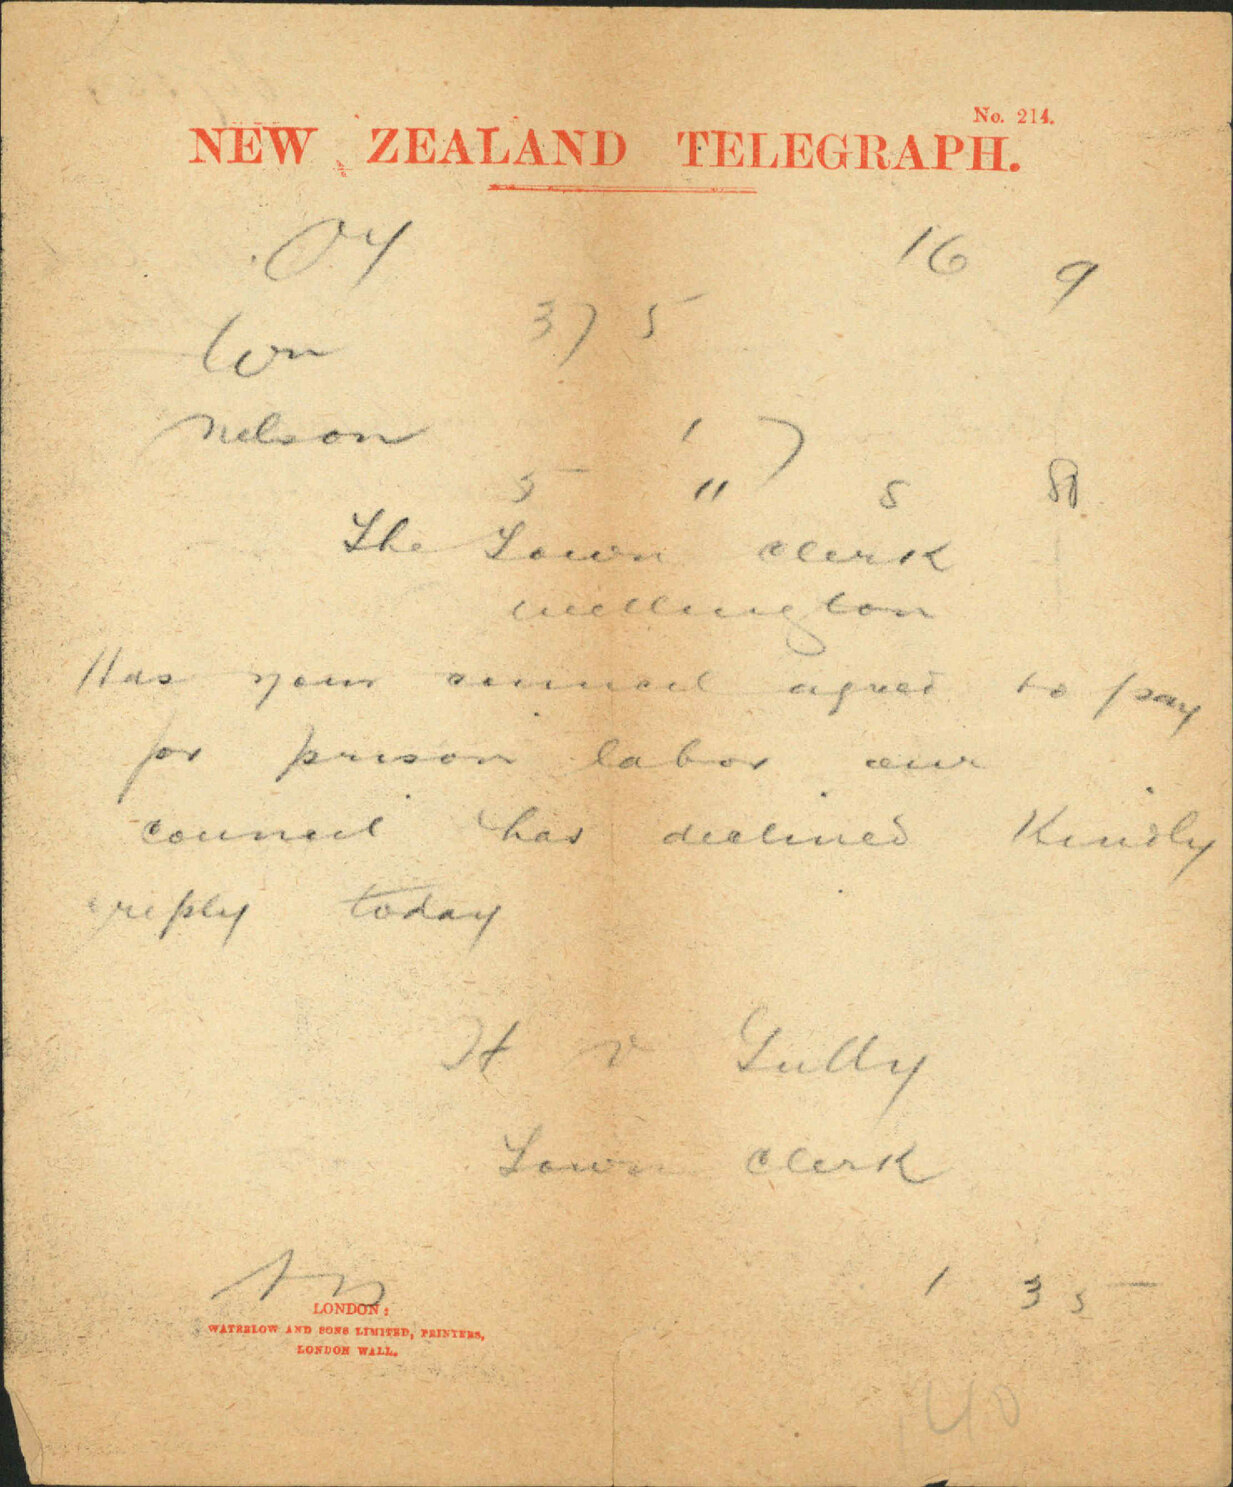 No. 214.
NEW ZEALAND TELEGRAPH.
16 9
375
Wn
Nelson 17
5 " 5
The Town Clerk
Wellington
Has your council agreed to pay
for prison labor our
council has declined Kindly
reply today
H V Gully
Town Clerk
1 35
LONDON:
WATERLOW AND SONS LIMITED, PRINTERS,
LONDON WALL.
40